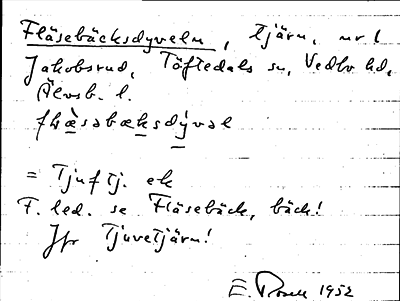 Fläsebäcksdyveln, tjärn, nr 1
Jakobsrud, Töftedals sn, Vedbo hd,
Älvsb. l.
= Tjuftj. ek
F. led. se Fläsebäck, bäck!
Jfr Tjuvetjärn!
E. 1952